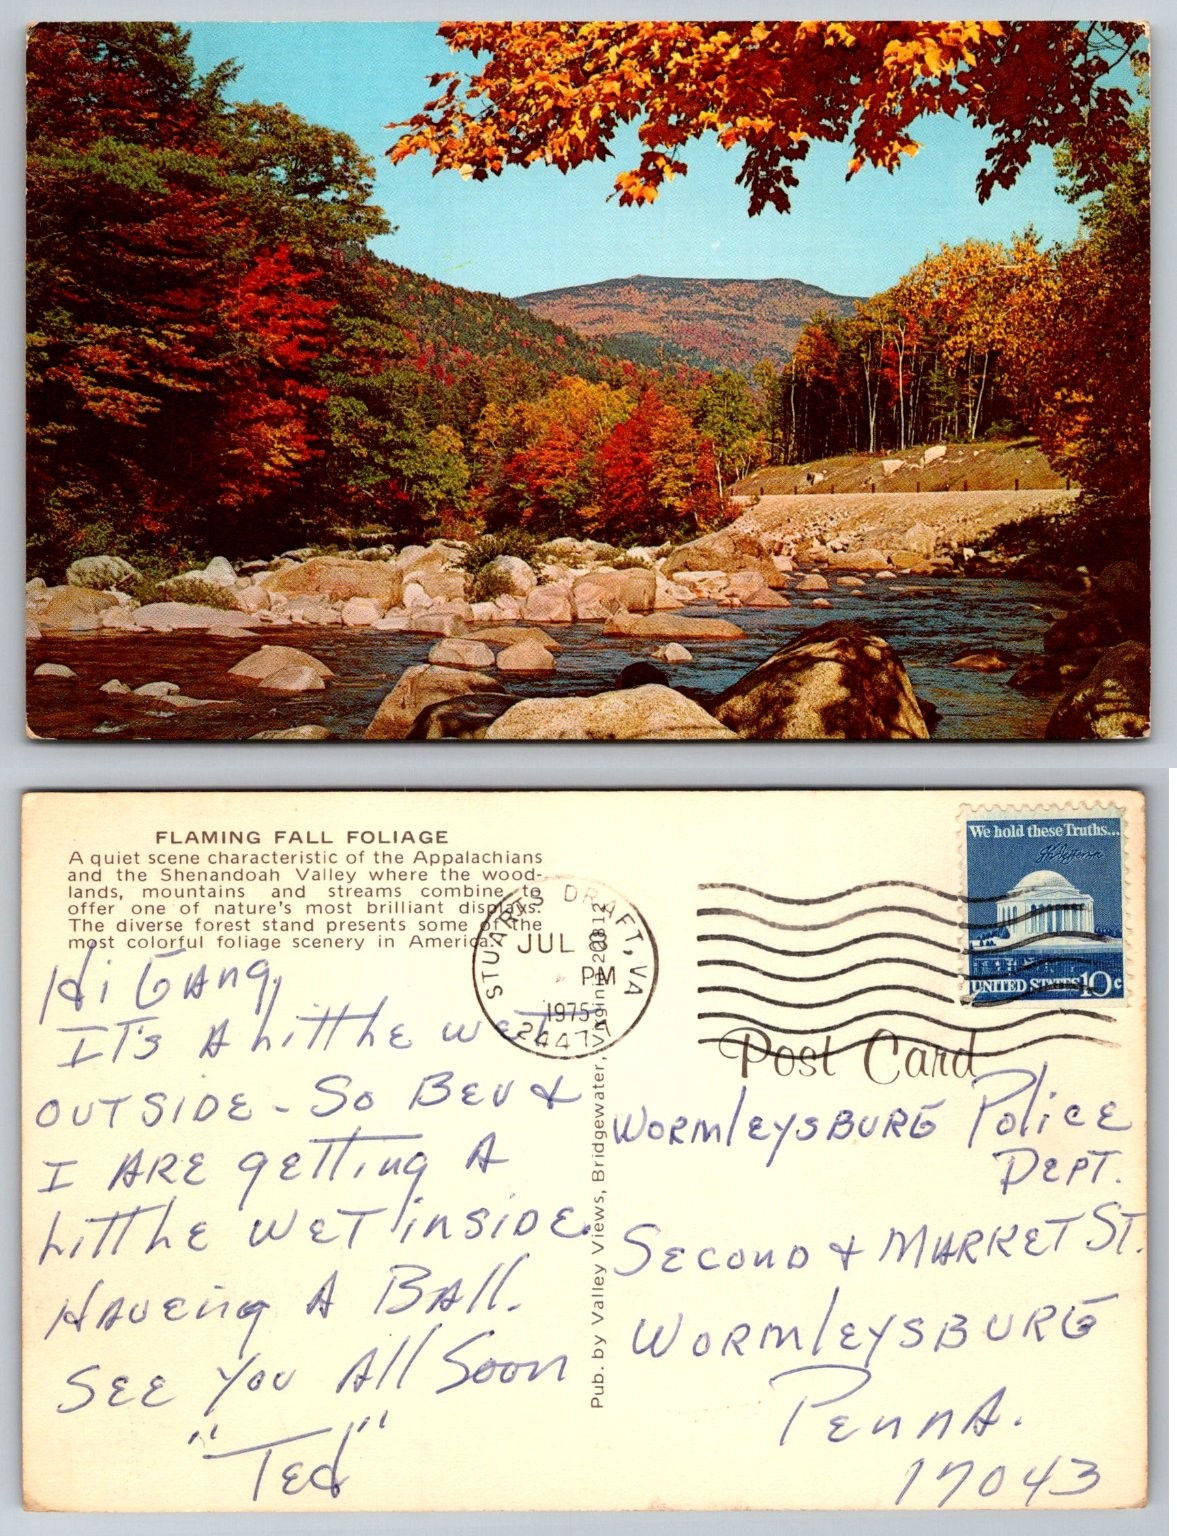 FLAMING FALL FOLIAGE
A quiet scene characteristic of the Appalachians
and the Shenandoah Valley where the wood-
lands, mountains and streams combine to
offer one of nature's most brilliant displays.
The diverse forest stand presents some of the
most colorful foliage scenery in America.
Hi Gang,
IT's A Little wet
OUTSIDE - So BEV &
I ARE getting A
Little WET inside.
Haveing A Ball.
SEE You All Soon
"Ted"
STUARTS DRAFT, VA
JUL
PM
1975
24477
Pub. by Valley Views, Bridgewater, Virginia 22812
We hold these Truths...
Th Jefferson
UNITED STATES 10c
Post Card
WORMleysBURG Police
DEPT.
Second & MARKET ST.
WORMleysBURG
Penna.
17043